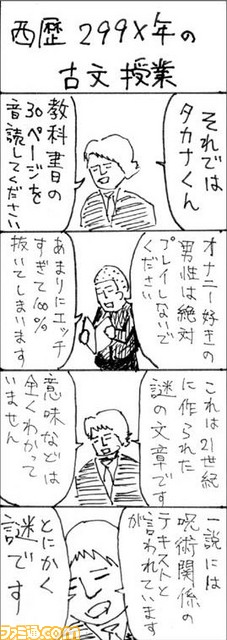 西歴299X年の
古文授業
それでは
タカナくん
教科書日の
30ページを
音読してください
オナニー好きの
男性は絶対
プレイしないで
ください
あまりにエッチ
すぎて100%
抜いてしまいます
これは21世紀
に作られた
謎の文章です
意味などは
全くわかって
いません
一説には
呪術関係の
テキストと
言われています
とにかく
謎です
ファミ通.com